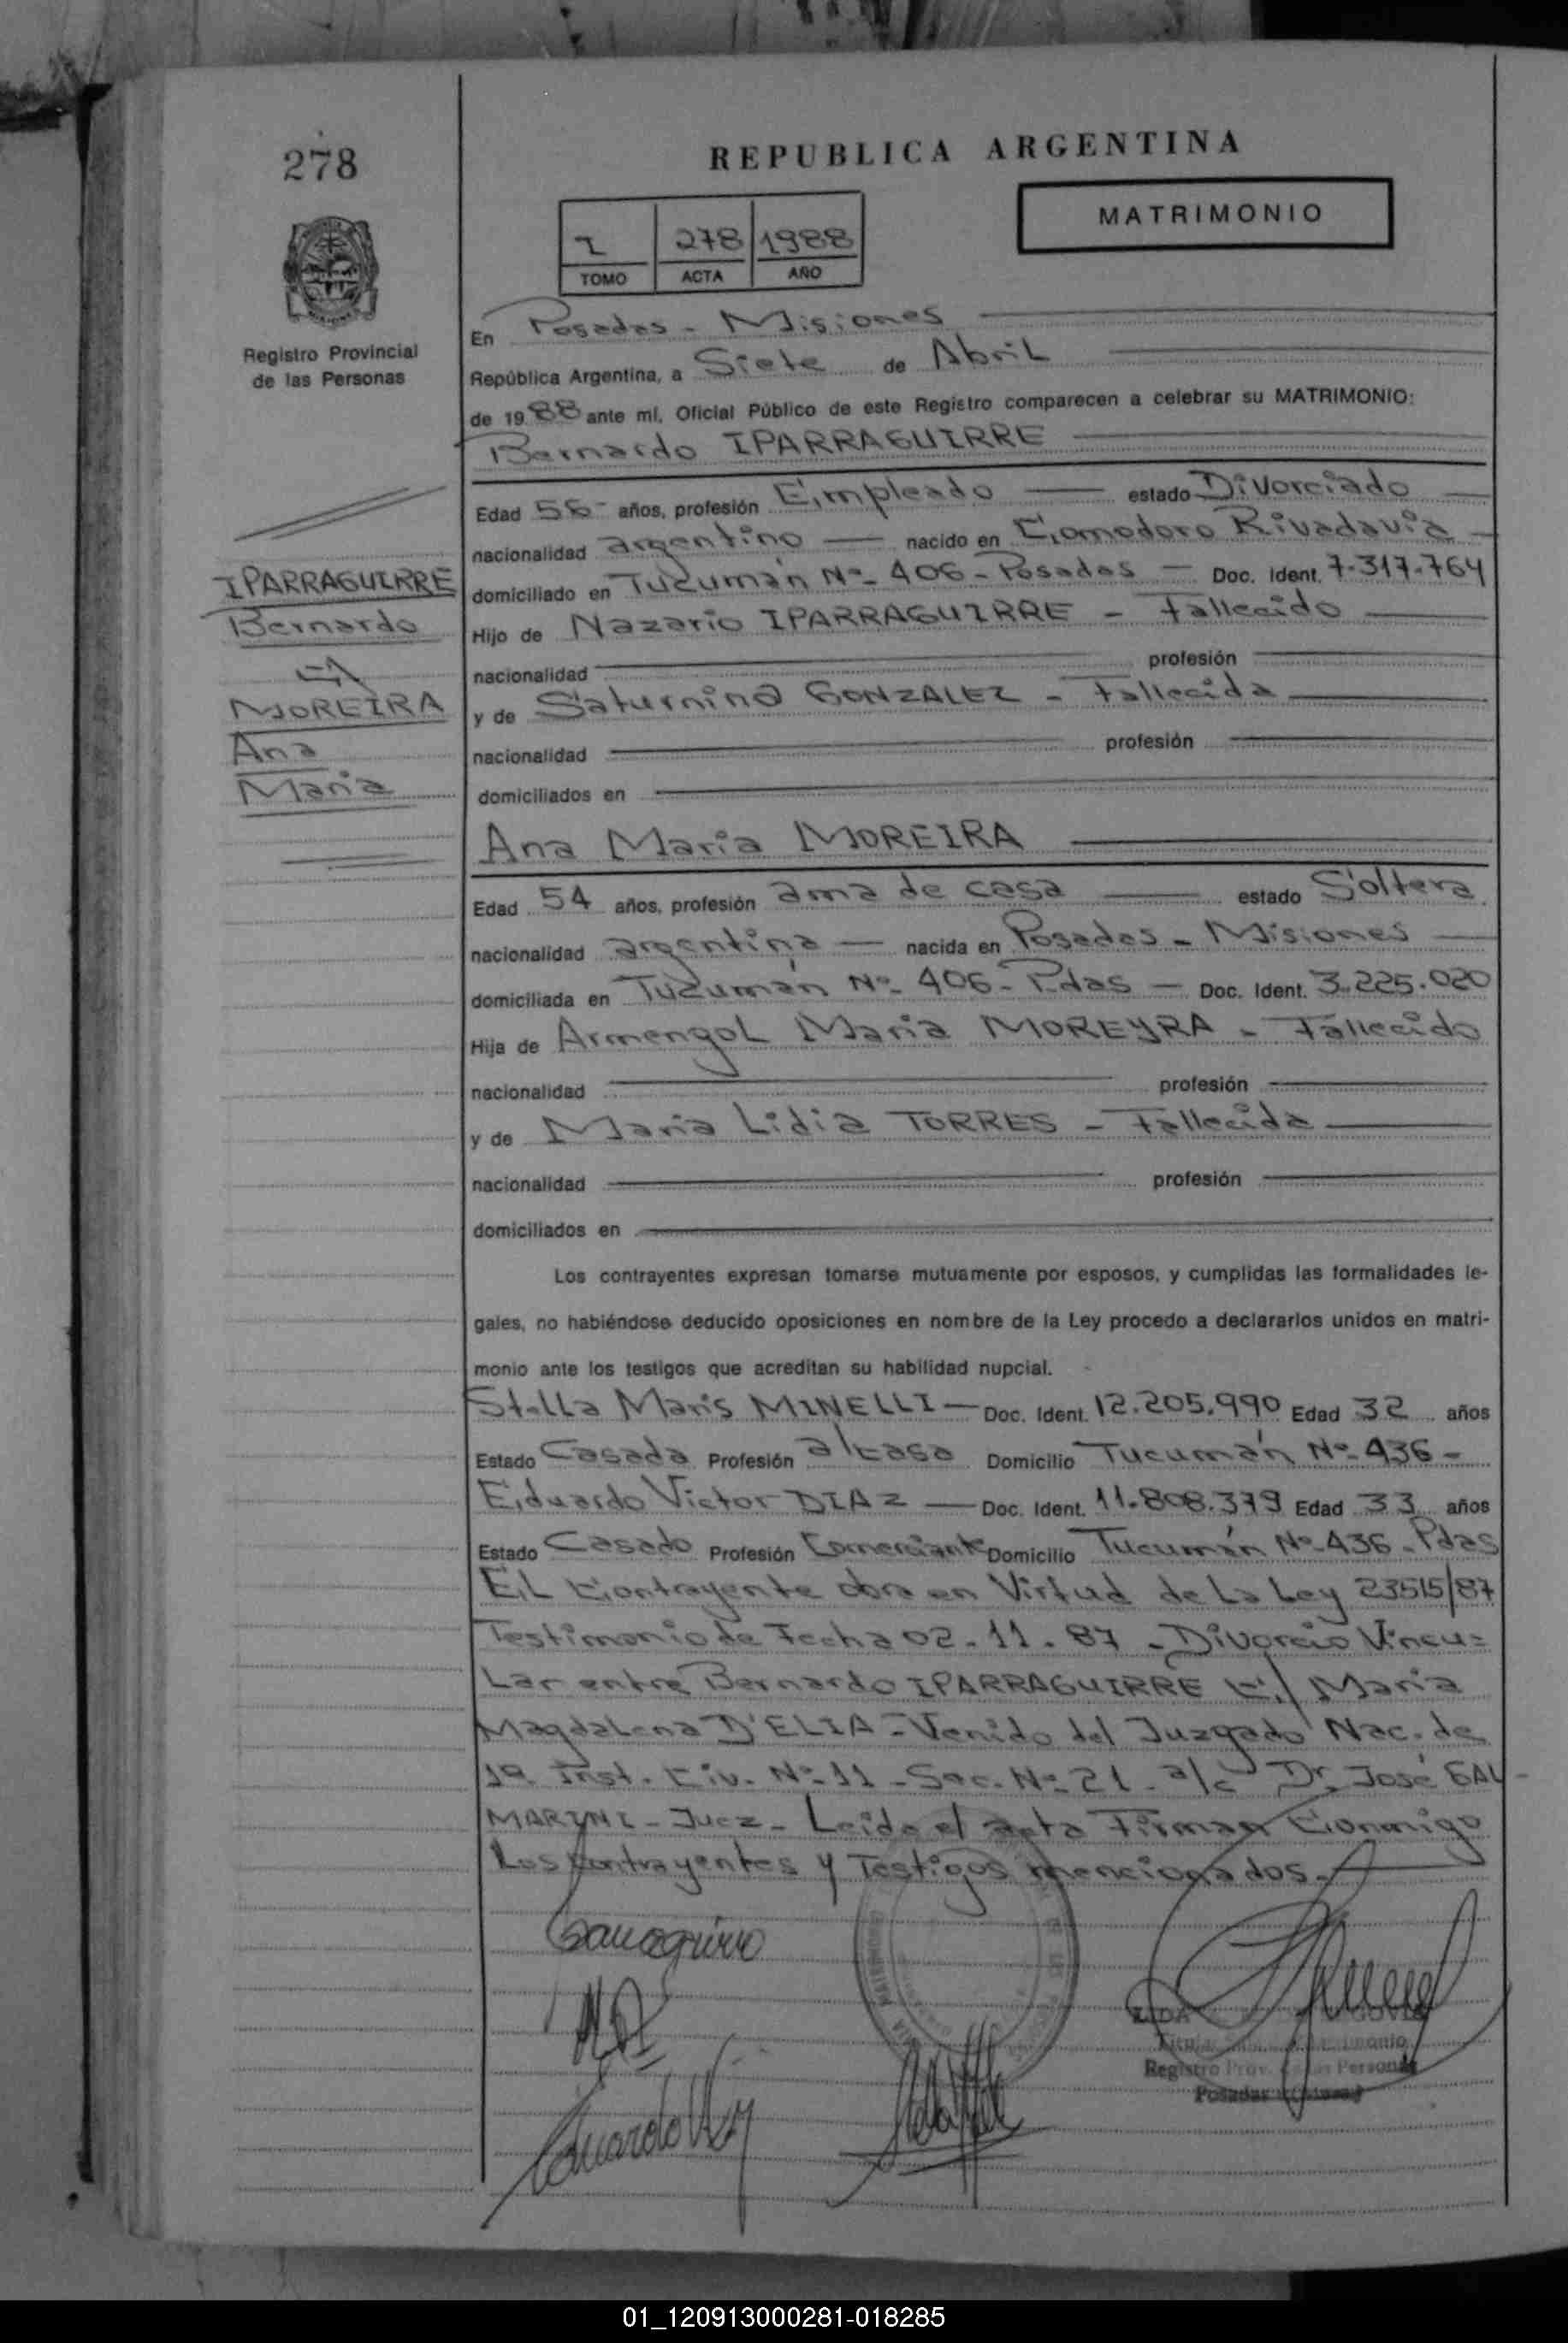 278
REPUBLICA ARGENTINA
MATRIMONIO
I 278 1988
TOMO ACTA AÑO
Registro Provincial
de las Personas
En Posadas - Misiones
República Argentina, a Siete de Abril
de 19 88 ante mí, Oficial Público de este Registro comparecen a celebrar su MATRIMONIO:
Bernardo IPARRAGUIRRE
Edad 56 años, profesión Empleado estado Divorciado
nacionalidad argentino nacido en Comodoro Rivadavia
domiciliado en Tucumán Nº 406 - Posadas - Doc. Ident. 7.317.764
Hijo de Nazario IPARRAGUIRRE - Fallecido
nacionalidad profesión
y de Saturnina GONZALEZ - Fallecida
nacionalidad profesión
domiciliados en
IPARRAGUIRRE
Bernardo
MOREIRA
Ana
Maria
Ana Maria MOREIRA
Edad 54 años, profesión ama de casa estado Soltera
nacionalidad argentina nacida en Posadas - Misiones
domiciliada en Tucumán Nº 406 - Pdas - Doc. Ident. 3.225.020
Hija de Armengol Maria MOREYRA - Fallecido
nacionalidad profesión
y de Maria Lidia TORRES - Fallecida
nacionalidad profesión
domiciliados en
Los contrayentes expresan tomarse mutuamente por esposos, y cumplidas las formalidades le-
gales, no habiéndose deducido oposiciones en nombre de la Ley procedo a declararlos unidos en matri-
monio ante los testigos que acreditan su habilidad nupcial.
Stella Maris MINELLI - Doc. Ident. 12.205.990 Edad 32 años
Estado Casada Profesión a/casa Domicilio Tucumán Nº 436 -
Eduardo Victor DIAZ - Doc. Ident. 11.808.379 Edad 33 años
Estado Casado Profesión Comerciante Domicilio Tucumán Nº 436 - Pdas
El Contrayente obra en Virtud de La Ley 23515/87
Testimonio de Fecha 02 - 11 - 87 - Divorcio Vincu=
Lar entre Bernardo IPARRAGUIRRE C/ Maria
Magdalena D'ELIA - Venido del Juzgado Nac. de
1º Inst. Civ. Nº 11 - Sec. Nº 21 - a/c Dr. José GAL-
MARINI - Juez - Leida el acta Firman Conmigo
Los contrayentes y Testigos mencionados.-
Registro Prov. Personas
Posadas
01_120913000281-018285